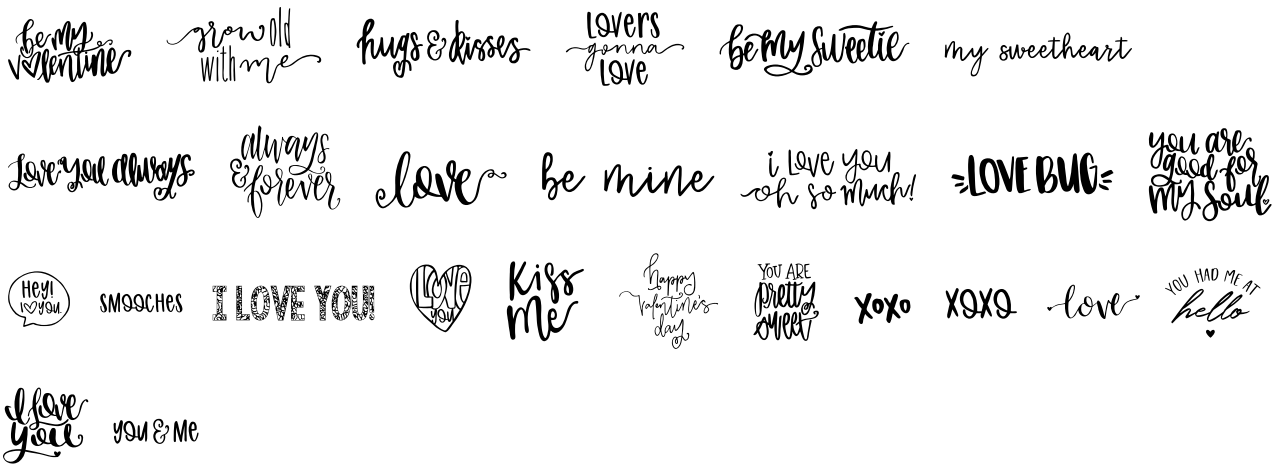 be my
valentine
grow old
with me
hugs & kisses
LOVERS
gonna
LOVE
be my sweetie
my sweetheart
Love you always
always
& forever
love
be mine
i love you
oh so much!
LOVE BUG
you are
good for
my soul
HEY!
I YOU.
SMOOCHES
I LOVE YOU!
LOVE
you
Kiss
Me
happy
valentine's
day
YOU ARE
pretty
sweet
xoxo
XOXO
love
YOU HAD ME AT
hello
I love
you
you & me